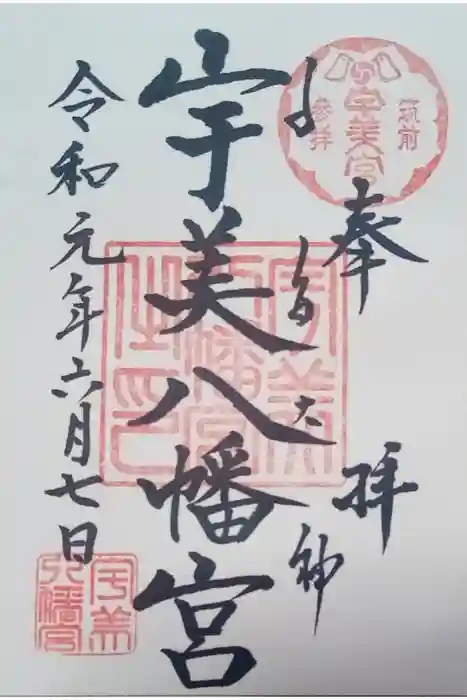 筑前
宇美宮
參拝
奉拝
大神
宇美八幡宮
宇美八幡宮之印
令和元年六月七日
宇美八幡宮